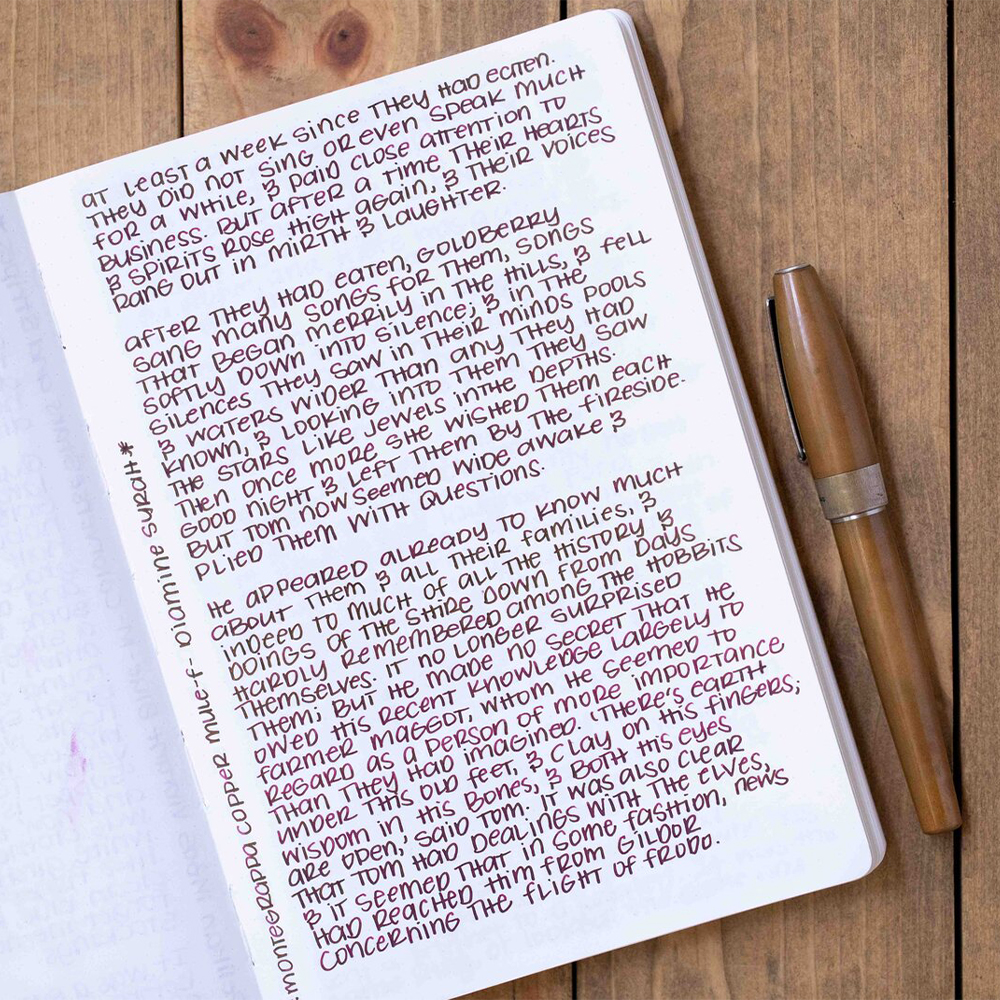 at least a week since they had eaten.
They did not sing or even speak much
for a while, & paid close attention to
business. But after a time, their hearts
& spirits rose high again, & their voices
rang out in mirth & laughter.
After they had eaten, Goldberry
sang many songs for them, songs
that began merrily in the hills, & fell
softly down into silence; & in the
silences they saw in their minds pools
& waters wider than any they had
known, & looking into them they saw
the stars like jewels in the depths.
Then once more she wished them each
good night & left them by the fireside.
But Tom now seemed wide awake &
plied them with questions.
He appeared already to know much
about them & all their families, &
indeed to much of all the history &
doings of the Shire down from days
hardly remembered among the hobbits
themselves. It no longer surprised
them; but he made no secret that he
owed his recent knowledge largely to
Farmer Maggot, whom he seemed to
regard as a person of more importance
than they had imagined. 'There's earth
under his old feet, & clay on his fingers;
wisdom in his bones, & both his eyes
are open,' said Tom. It was also clear
that Tom had dealings with the elves,
& it seemed that in some fashion, news
had reached him from Gildor
concerning the flight of Frodo.
montegrappa copper mule-f- diamine syrah*